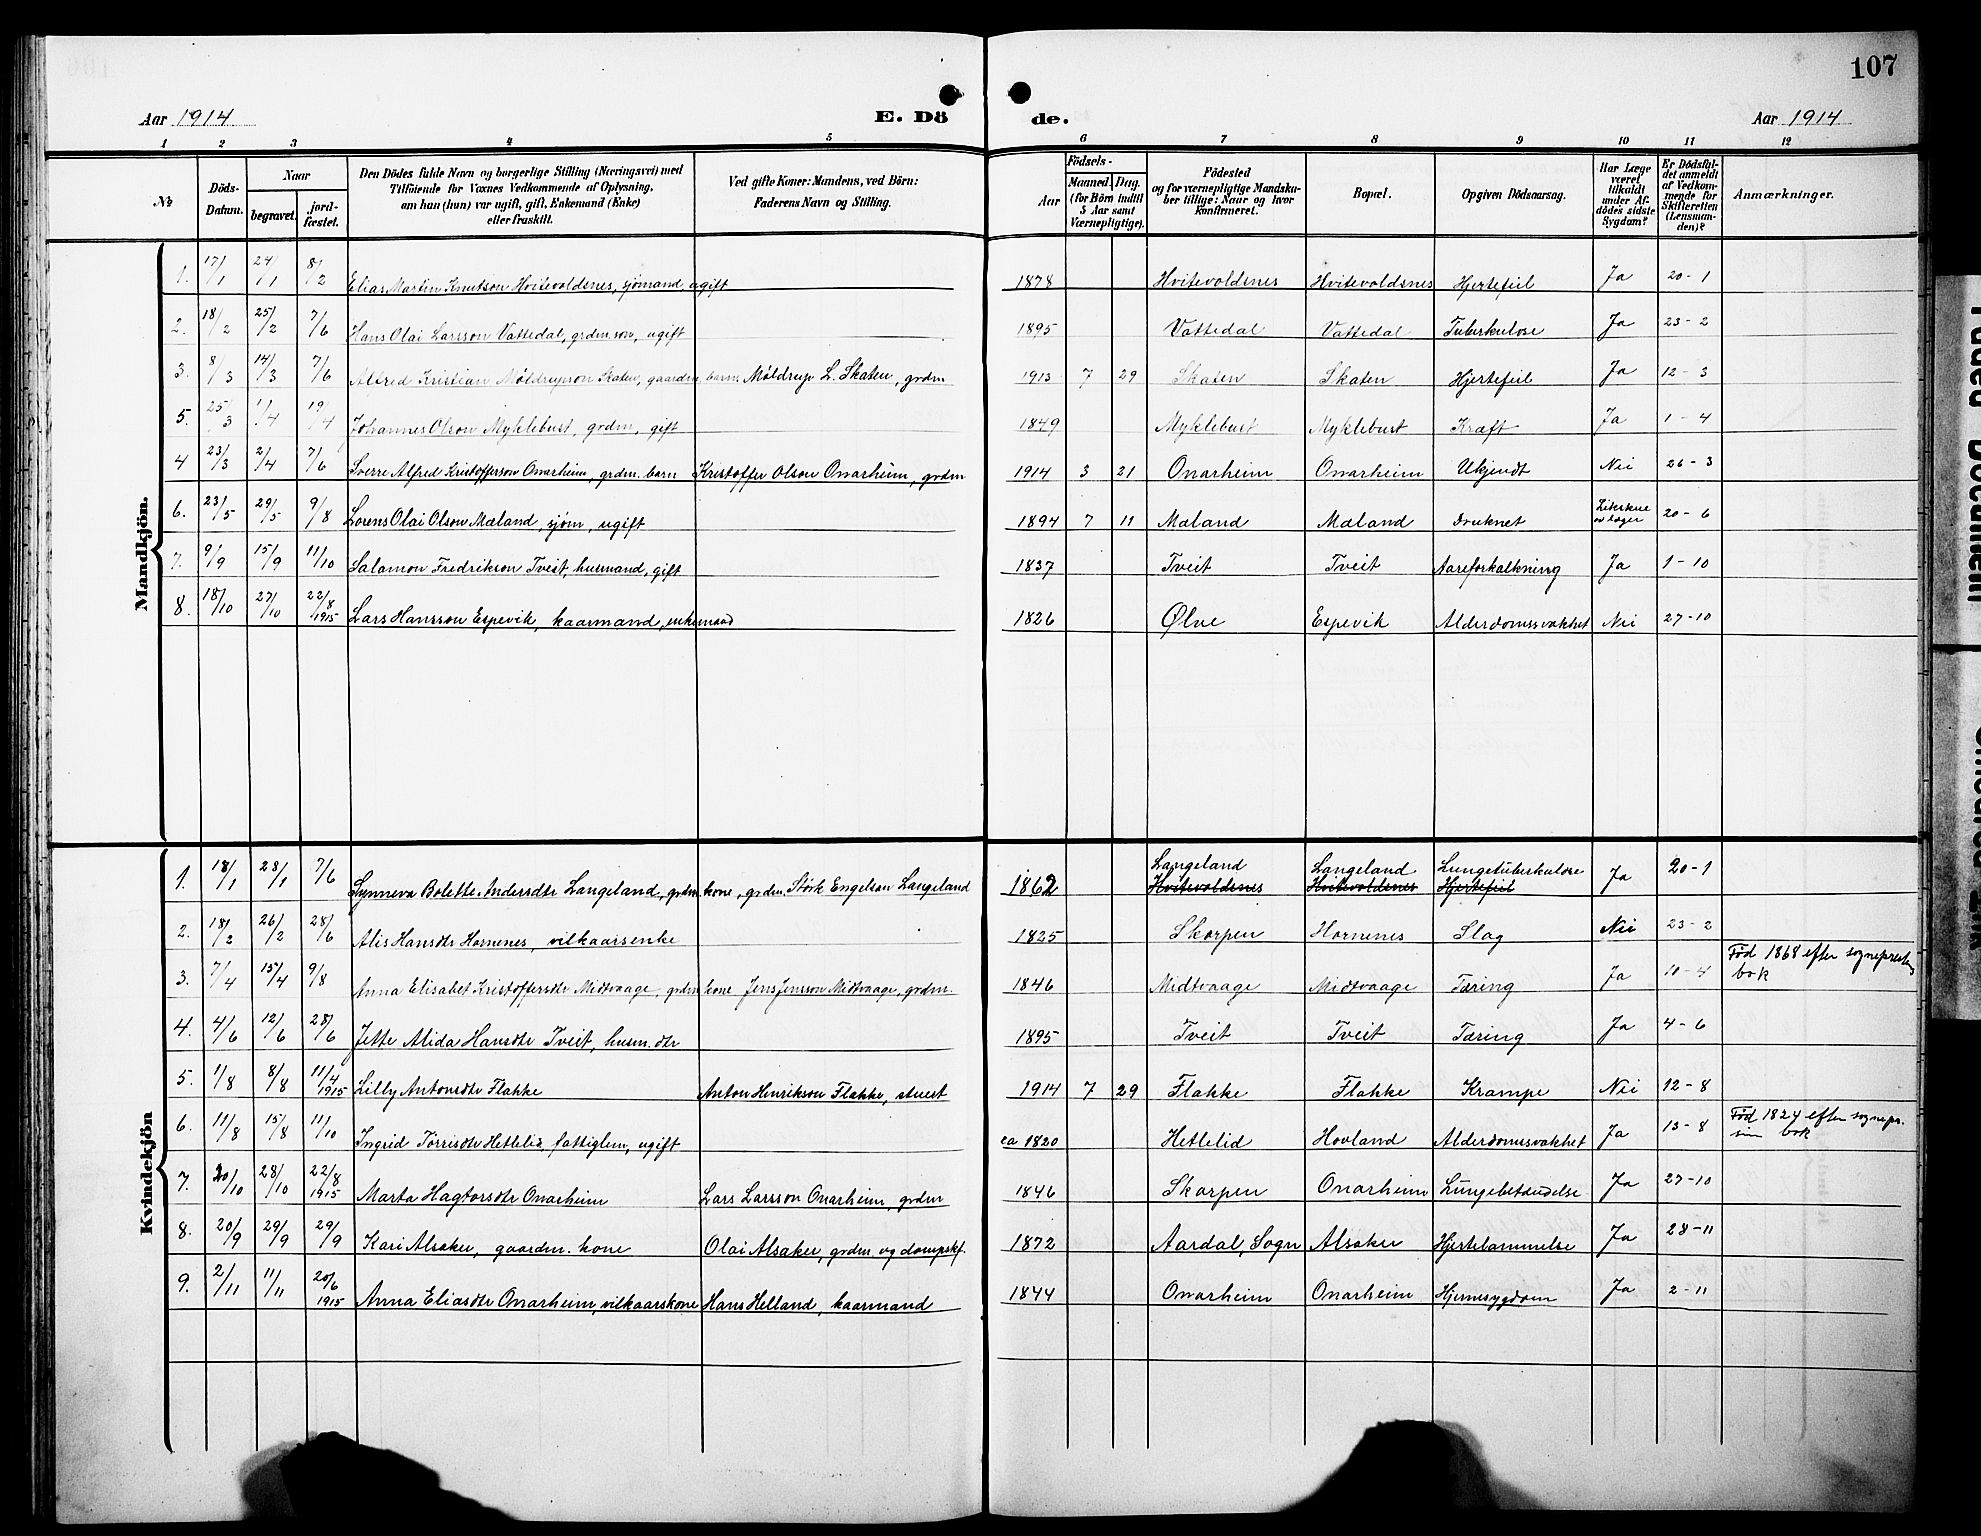 107
Aar 1914 E. Dö de. Aar 1914
1 2 3 4 5 6 7 8 9 10 11 12
№ Döds-Datum. Naar begravet. jord-fæstet. Den Dödes fulde Navn og borgerlige Stilling (Næringsvei) med Tilföiende for Voxnes Vedkommende af Oplysning, om han (hun) var ugift, gift, Enkemand (Enke) eller fraskilt. Ved gifte Koner: Mandens, ved Börn: Faderens Navn og Stilling. Födsels- Aar Maaned. Dag. (for Börn indtil 5 Aar samt Værnepligtige). Födested og for værnepligtige Mandsku-ber tillige: Naar og hvor konfirmeret. Bopæl. Opgiven Dödsaarsag. Har Læge været tilkaldt under Af-dödes sidste Sygdom? Er Dödsfal-det anmeldt af Vedkom-mende for Skifteretten (Lensman-den)? Anmærkninger.
Mandkjön.
1. 17/1 24/1 8/2 Elias Martin Knutson Hvitevoldsnes, sjömand, ugift 1878 Hvitevoldsnes Hvitevoldsnes Hjertefeil Ja 20-1
2. 18/2 25/2 7/6 Hans Olai Larsson Vattedal, grdm. søn, ugift 1895 Vattedal Vattedal Tuberkulose Ja 23-2
3. 8/3 14/3 7/6 Alfred Kristian Møldrupson Skaten, gaardm. barn Møldrup L. Skaten, grdm 1913 7 29 Skaten Skaten Hjertefeil Ja 12-3
5. 25/3 1/4 19/4 Johannes Olson Myklebust, grdm, gift 1849 Myklebust Myklebust Kræft Ja 1-4
4 23/3 2/4 7/6 Sverre Alfred Kristofferson Onarheim, grdm. barn Kristoffer Olson Onarheim, grdm 1914 3 21 Onarheim Onarheim Ukjendt Nei 26-3
6. 23/5 29/5 9/8 Lorens Olai Olson Mæland, sjøm, ugift 1894 7 11 Mæland Mæland Druknet 20-6
7. 9/9 15/9 11/10 Salamon Fredrikson Tveit, husmand, gift 1837 Tveit Tveit Aareforkalkning Ja 1-10
8. 18/10 27/10 22/8 1915 Lars Hansson Espevik, kaarmand, enkemand 1826 Ølve Espevik Alderdomssvakhet Nei 27-10
Kvindekjön
1. 18/1 28/1 7/6 Synneva Bolette Andersdtr Langeland, grdm kone, grdm Størk Engelson Langeland 1862 Langeland Hvitevoldsnes Langeland Hvitevoldsnes Lungetuberkulose Hjertefeil Ja 20-1
2. 18/2 26/2 28/6 Alis Hansdtr Hornenes, vilkaarsenke 1825 Skorpen Hornenes Slag Nei 23-2
3. 7/4 15/4 9/8 Anna Elisabet Kristoffersdtr Midtvaage, grdm kone Jens Jensson Midtvaage, grdm. 1846 Midtvaage Midtvaage Tæring Ja 10-4 Fød 1868 efter sogneprestens bok
4. 4/6 12/6 28/6 Jette Alida Hansdtr Tveit, husm. dtr 1895 Tveit Tveit Tæring Ja 4-6
5. 1/8 8/8 11/4 1915 Lilly Antonsdtr Flakke Anton Henrikson Flakke, stuert 1914 7 29 Flakke Flakke Krampe Nei 12-8
6. 11/8 15/8 11/10 Ingrid Tørrisdtr Hetlelid, fattiglem, ugift ca 1820 Hetlelid Hovland Alderdomssvakhet Ja 13-8 Fød 1824 efter sognepr. sin bok
7. 20/10 28/10 22/8 1915 Marta Hagtorsdtr Onarheim Lars Larsson Onarheim, grdm 1846 Skorpen Onarheim Lungebetændelse Ja 27-10
8. 20/9 29/9 29/9 Kari Alsaker, gaardm. kone Olai Alsaker, grdm og dampskf. 1872 Aardal, Sogn Alsaker Hjertelammelse Ja 28-11
9. 2/11 11/11 20/6 1915 Anna Eliasdtr Onarheim, vilkaarskone Hans Helland, kaarmand 1844 Onarheim Onarheim Hjernesygdom Ja 2-11